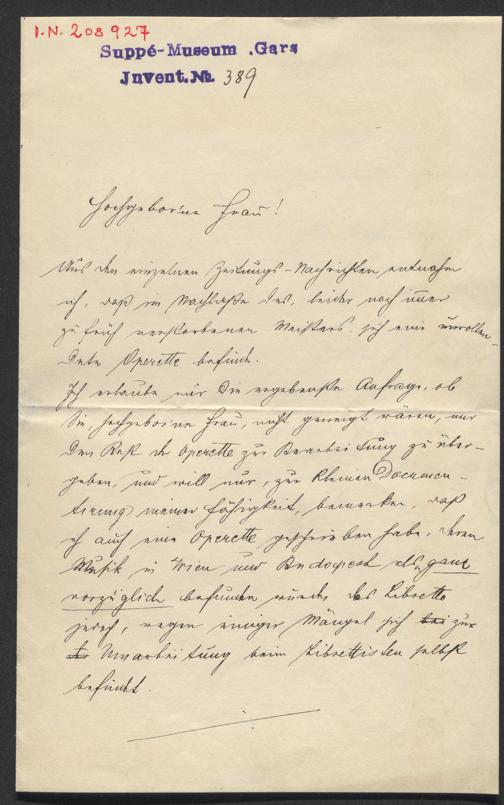 I.N. 208927
Suppé-Museum Gars
Invent.№ 389
Hochgeborene Frau!
Aus den einzelnen Zeitungs-Nachrichten entnahm
ich, daß im Nachlaße des, leider noch immer
zu früh verstorbenen Meisters, sich eine unvollen-
dete Operette befinde.
Ich erlaube mir die ergebenste Anfrage, ob
Sie, hochgeborene Frau, nicht geneigt wären, mir
den Rest der Operette zur Bearbeitung zu über-
geben, und will nur, zur kleinen Documen-
tirung meiner Fähigkeit, bemerken, daß
ich auch eine Operette geschrieben habe, deren
Musik in Wien und Budapest als ganz
vorzüglich befunden wurde, das Libretto
jedoch, wegen einiger Mängel sich bei zur
Umarbeitung beim Librettisten selbst
befindet.